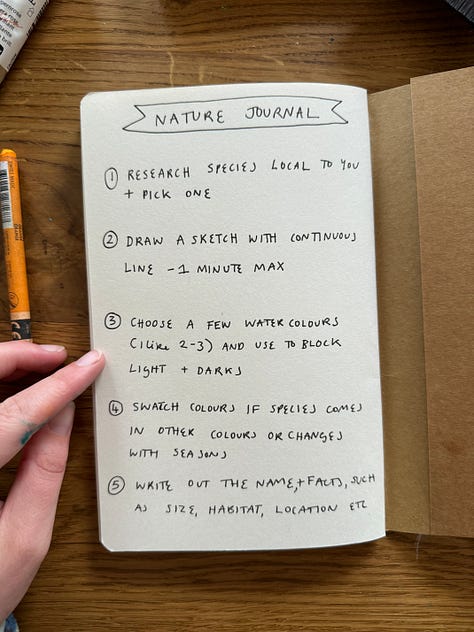 NATURE JOURNAL
① RESEARCH SPECIES LOCAL TO YOU
+ PICK ONE
② DRAW A SKETCH WITH CONTINUOUS
LINE - 1 MINUTE MAX
③ CHOOSE A FEW WATERCOLOURS
(I LIKE 2-3) AND USE TO BLOCK
LIGHT + DARKS
④ SWATCH COLOURS IF SPECIES COMES
IN OTHER COLOURS OR CHANGES
WITH SEASONS
⑤ WRITE OUT THE NAME, + FACTS, SUCH
AS SIZE, HABITAT, LOCATION ETC